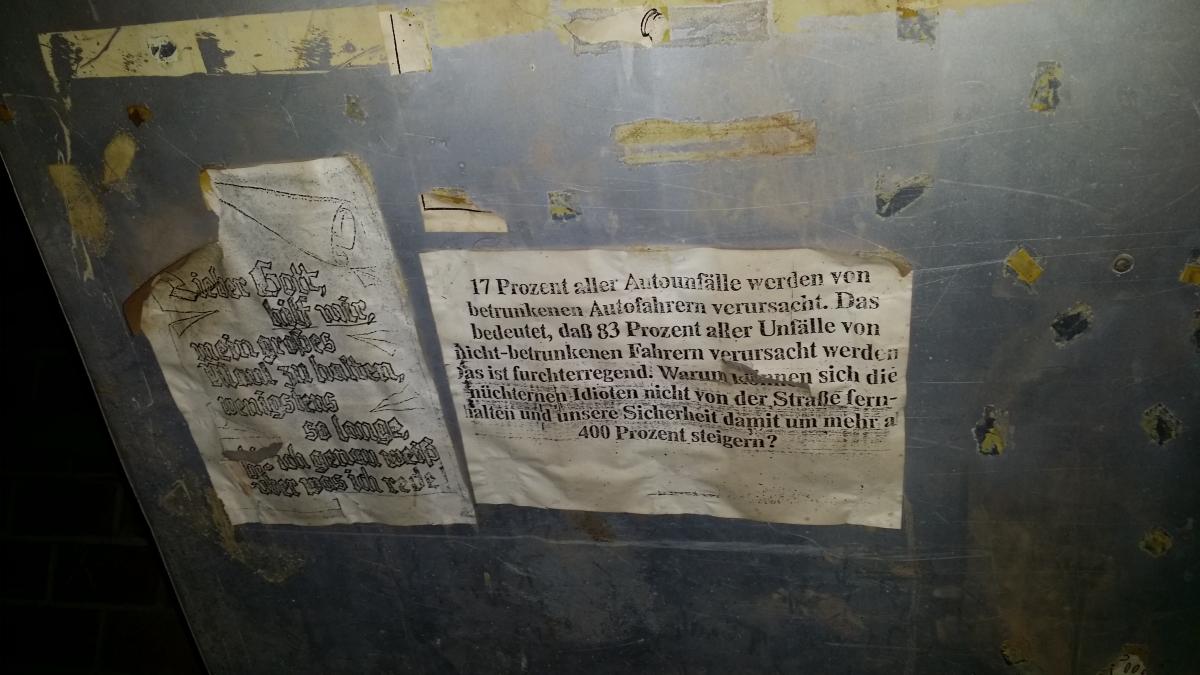 Lieber Gott,
hilf mir,
mein großes
Maul zu halten,
wenigstens
so lange,
bis ich genau weiß
über was ich rede
17 Prozent aller Autounfälle werden von
betrunkenen Autofahrern verursacht. Das
bedeutet, daß 83 Prozent aller Unfälle von
nicht-betrunkenen Fahrern verursacht werden
as ist furchterregend. Warum können sich die
nüchternen Idioten nicht von der Straße fern-
halten und unsere Sicherheit damit um mehr a
400 Prozent steigern?